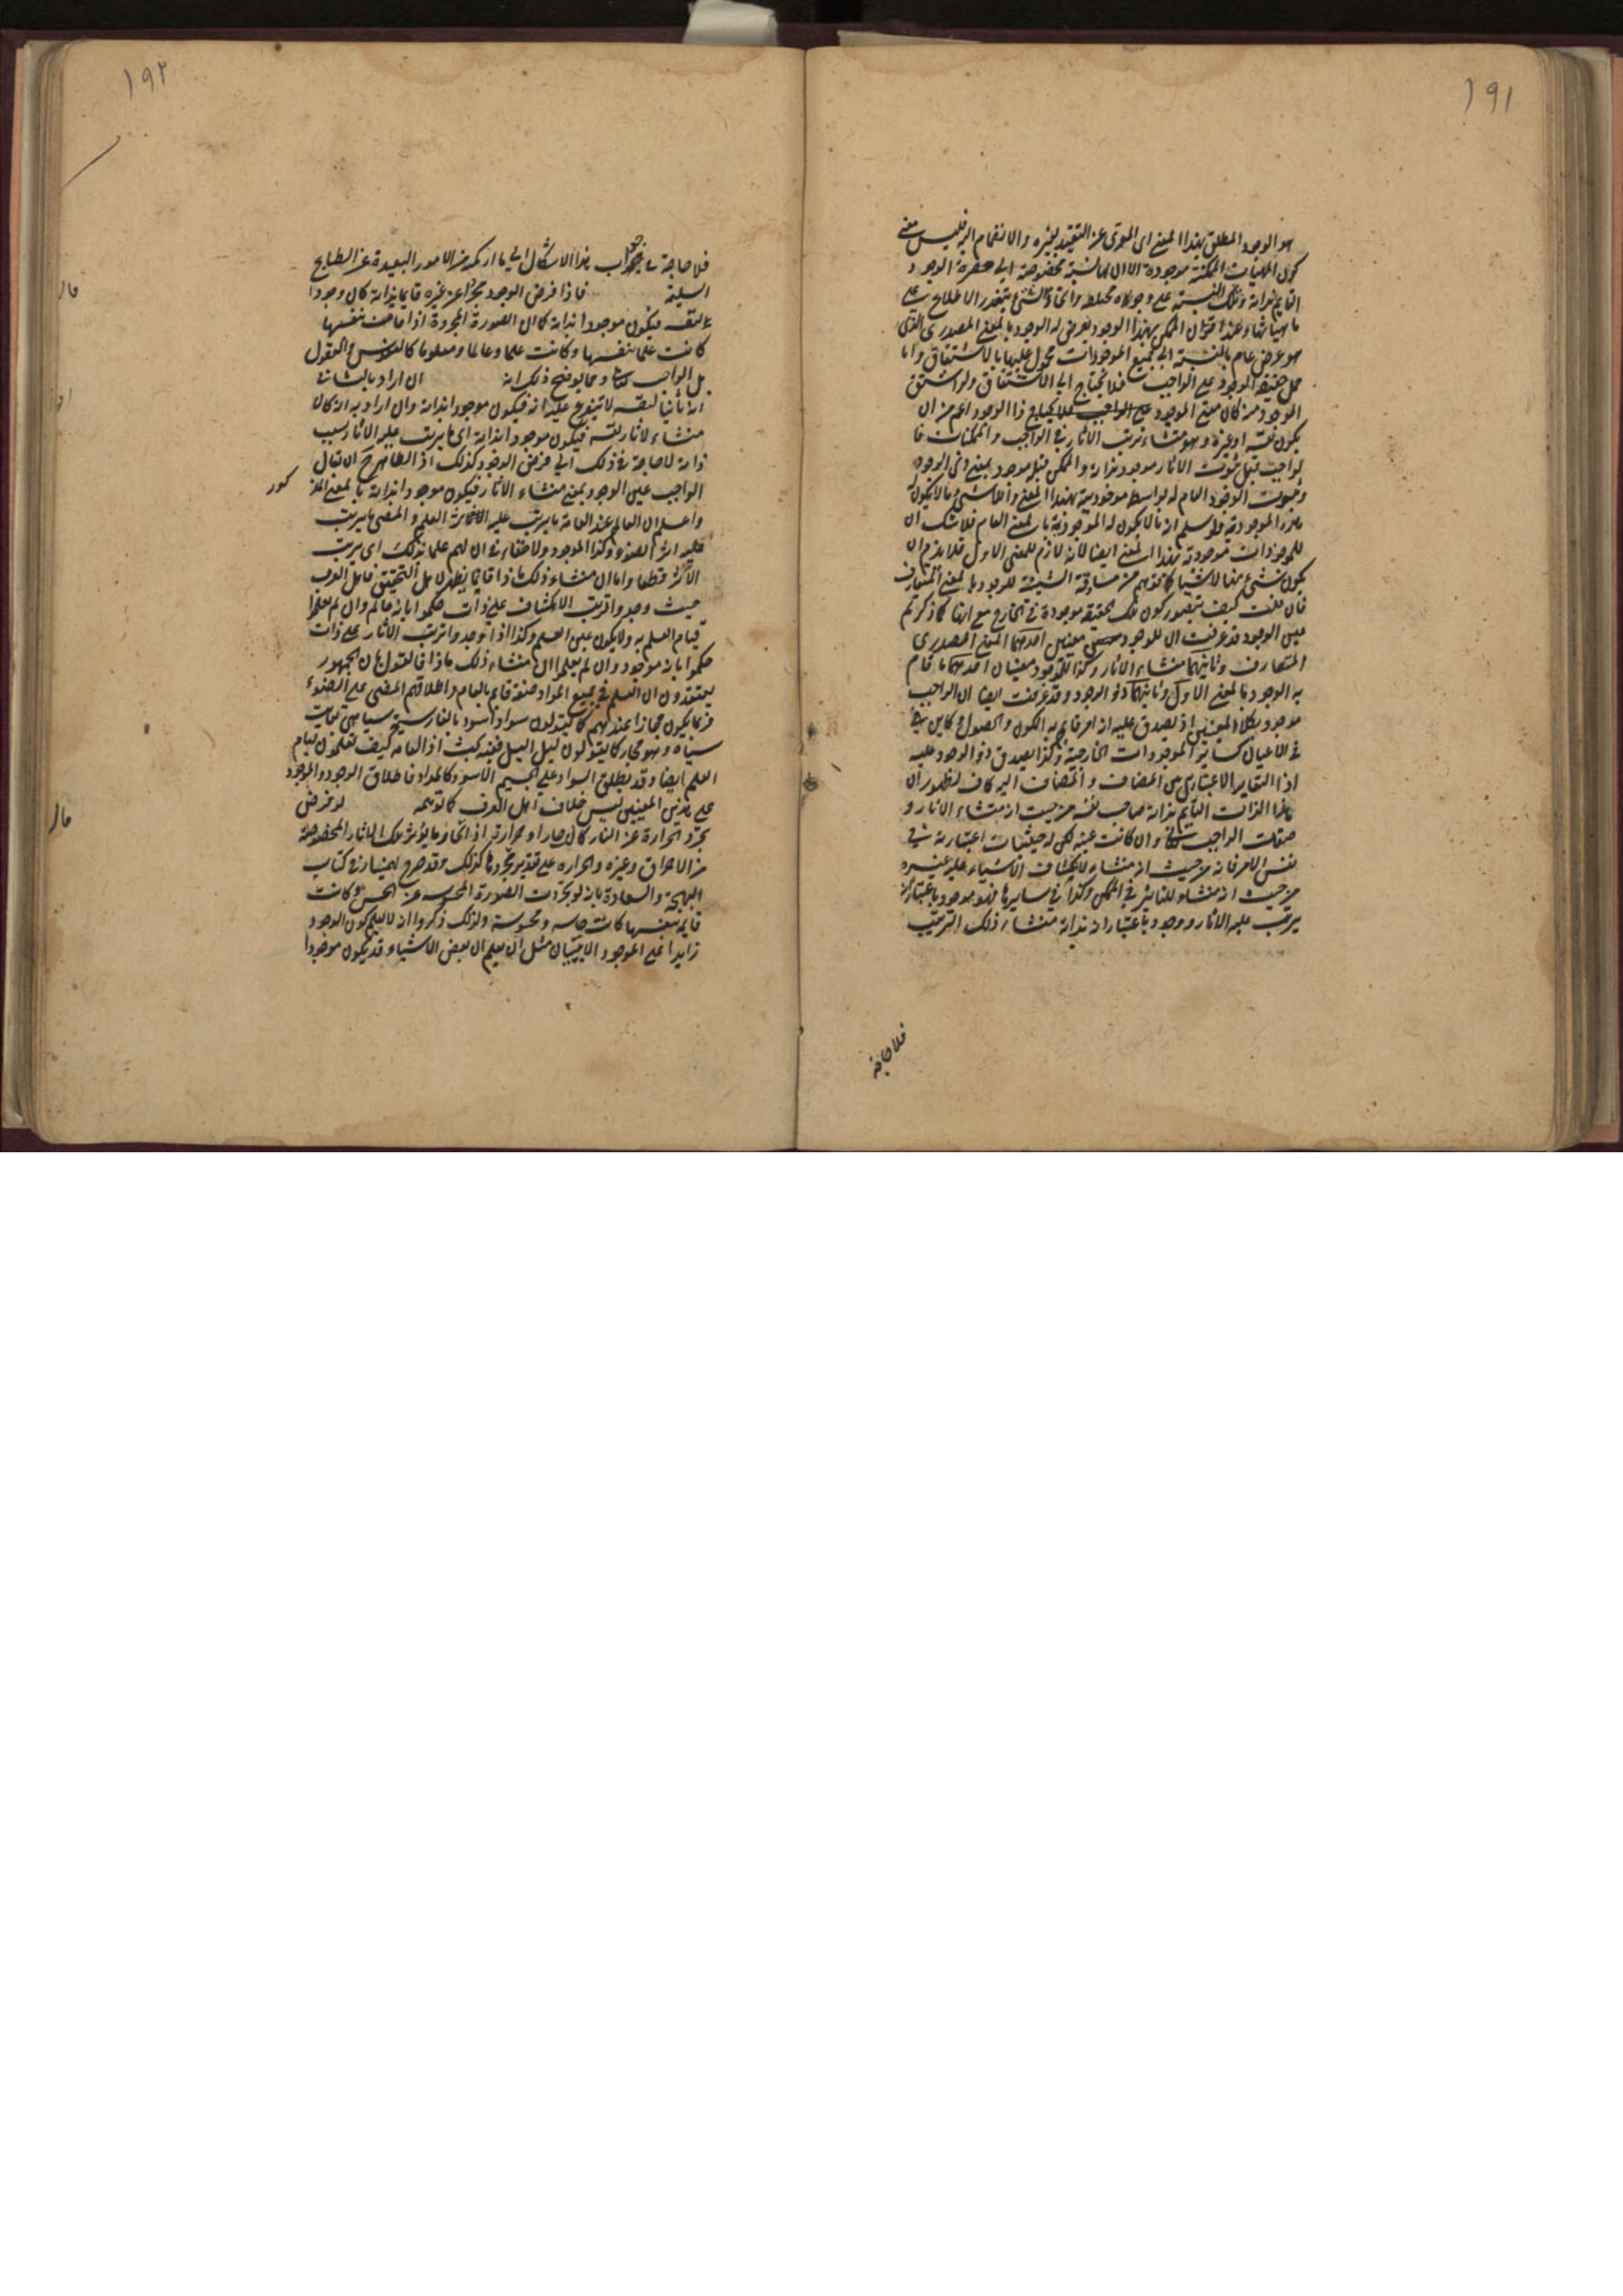 ١٩١
هو الوجود المطلق بهذا المعنى اى المعرى عن التقييد بغيره والانضمام اليه فليس معنى
كون الماهيات الممكنة موجودة الا ان لها نسبة مخصوصة الى حضرة الوجود
القايم بذاته وتلك النسبة على وجوه مختلفة وانحاء شتى يتعذر الاطلاع على
ماهياتها وعند اقتران الممكن بهذا الوجود يعرض له الوجود بالمعنى المصدرى الذى
هو عرض عام بالنسبة الى جميع الموجودات محمول عليها بالاشتقاق واما
حمل حقيقة الوجود على الواجب فلا يحتاج الى الاشتقاق ولو اشتق
الموجود منه كان معنى الموجود ذا الوجود اعم من ان
يكون نفسه او غيره وهو منشاء ترتب الاثار فى الواجب والممكنات
الواجب قبل ثبوت الاثار موجود بذاته والممكن قبله موجود بمعنى ذى الوجود
وثبوت الوجود العام له بواسطة موجوديته بهذا المعنى والاشئ مما لا يكون له
الموجودية ولو سلم ان ما لا يكون له الموجودية بالمعنى العام فلا شك ان
للموجودات موجودية بهذا المعنى ايضا لانه لازم للمعنى الاول فلا يلزم ان
يكون شئ منها لا شيئا كما توهم من مساوقة الشيئية للوجود بالمعنى المتعارف
فان قلت كيف يتصور كون تلك الحقيقة موجودة فى الخارج مع انها كما ذكرتم
عين الوجود قد عرفت ان للوجود معنيين احدهما المعنى المصدرى
المتعارف وثانيهما منشاء الاثار وكذا للموجود معنيان احدهما ما قام
به الوجود بالمعنى الاول وثانيهما ذو الوجود وقد عرفت ايضا ان الواجب
موجود بكلا المعنيين اذ يصدق عليه انه امر قام به الكون والحصول كاين
فى الاعيان كساير الموجودات الخارجية وكذا يصدق ذو الوجود عليه
اذ التغاير الاعتبارى بين المضاف والمضاف اليه كاف لظهور ان
هذا الذات القايم بذاته صاحب نفسه من حيث انه منشاء الاثار و
صفات الواجب تعالى وان كانت عينه لكن له حيثيات اعتبارية فى
نفس الامر فانه من حيث انه منشاء لانكشاف الاشياء عليه غيره
من حيث انه منشاء للتاثير فى الممكن وكذا فى سايرها فهو موجود باعتبار انه
يترتب عليه الاثار ووجود باعتبار انه بذاته منشاء ذلك الترتب
فلا حاجة
١٩٢
فلا حاجة فى جواب هذا الاشكال الى ما ارتكبه من الامور البعيدة عن الطبايع
السليمة فاذا فرض الوجود مجردا عن غيره قايما بذاته كان وجودا
لنفسه فيكون موجودا بذاته كما ان الصورة المجردة اذا قامت بنفسها
كانت علما بنفسها وكانت علما وعالما ومعلوما كالنفوس والعقول
بل الواجب تعالى ومما يوضح ذلك انه ان اراد بالثانى
لنفسه لا يتفرع عليه انه فيكون موجودا بذاته وان اراد به انه كان
منشاء لاثار نفسه فيكون موجودا بذاته اى ما يترتب عليه الاثار بسبب
ذاته لا حاجة فى ذلك الى فرض الوجود كذلك اذ الظاهر ح ان يقال
الواجب عين الوجود بمعنى منشاء الاثار فيكون موجودا بذاته بالمعنى المذ
كور
واعلم ان العالم عند العامة ما يترتب عليه العلم والمضى ما يترتب
عليه اثر الضوء وكذا الموجود ولا خفاء فى ان لهم علما بذلك اى بترتب
الاثر قطعا واما ان منشاء ذلك ماذا فانما يظهر لاهل التحقيق فاهل العرف
حيث وجدوا ترتب الانكشاف على ذات حكموا بانه عالم وان لم يعلموا
قيام العلم به ولا يكون عين العلم وكذا اذا وجدوا ترتب الاثار على ذات
حكموا بانه موجود وان لم يعلموا ان منشاء ذلك ماذا فالقول بان الجمهور
يعتقدون ان العلم فى جميع المواد صفة قائم بالعالم واطلاقهم المضى على الضوء
فربما يكون مجازا عندهم كما يقولون سواد اسود بالفارسية سياهى بغايت
سياه وهو مجاز كما يقولون ليل اليل ففيه بحث اذ العامة كيف يعلمون قيام
العلم ايضا وقد يطلق السواد على الجسم الاسود كالمداد فاطلاق الوجود والموجود
على هذين المعنيين ليس خلاف اهل العرف كما توهمه لو فرض
تجرد الحرارة عن النار كان حارا وحرارة اذ الحار ما يؤثر تلك الاثار المخصوصة
من الاحراق وغيره والحرارة على تقدير تجردها كذلك وقد صرح بهمنيار فى كتاب
البهجة والسعادة بانه لو تجردت الصورة المحسوسة عن الحس وكانت
قايمة بنفسها كانت حاسة ومحسوسة ولذلك ذكروا انه لا يعلم كون الوجود
زايدا على الموجود الا ببيان مثل ان يعلم ان بعض الاشياء قد يكون موجودا
قال
قال